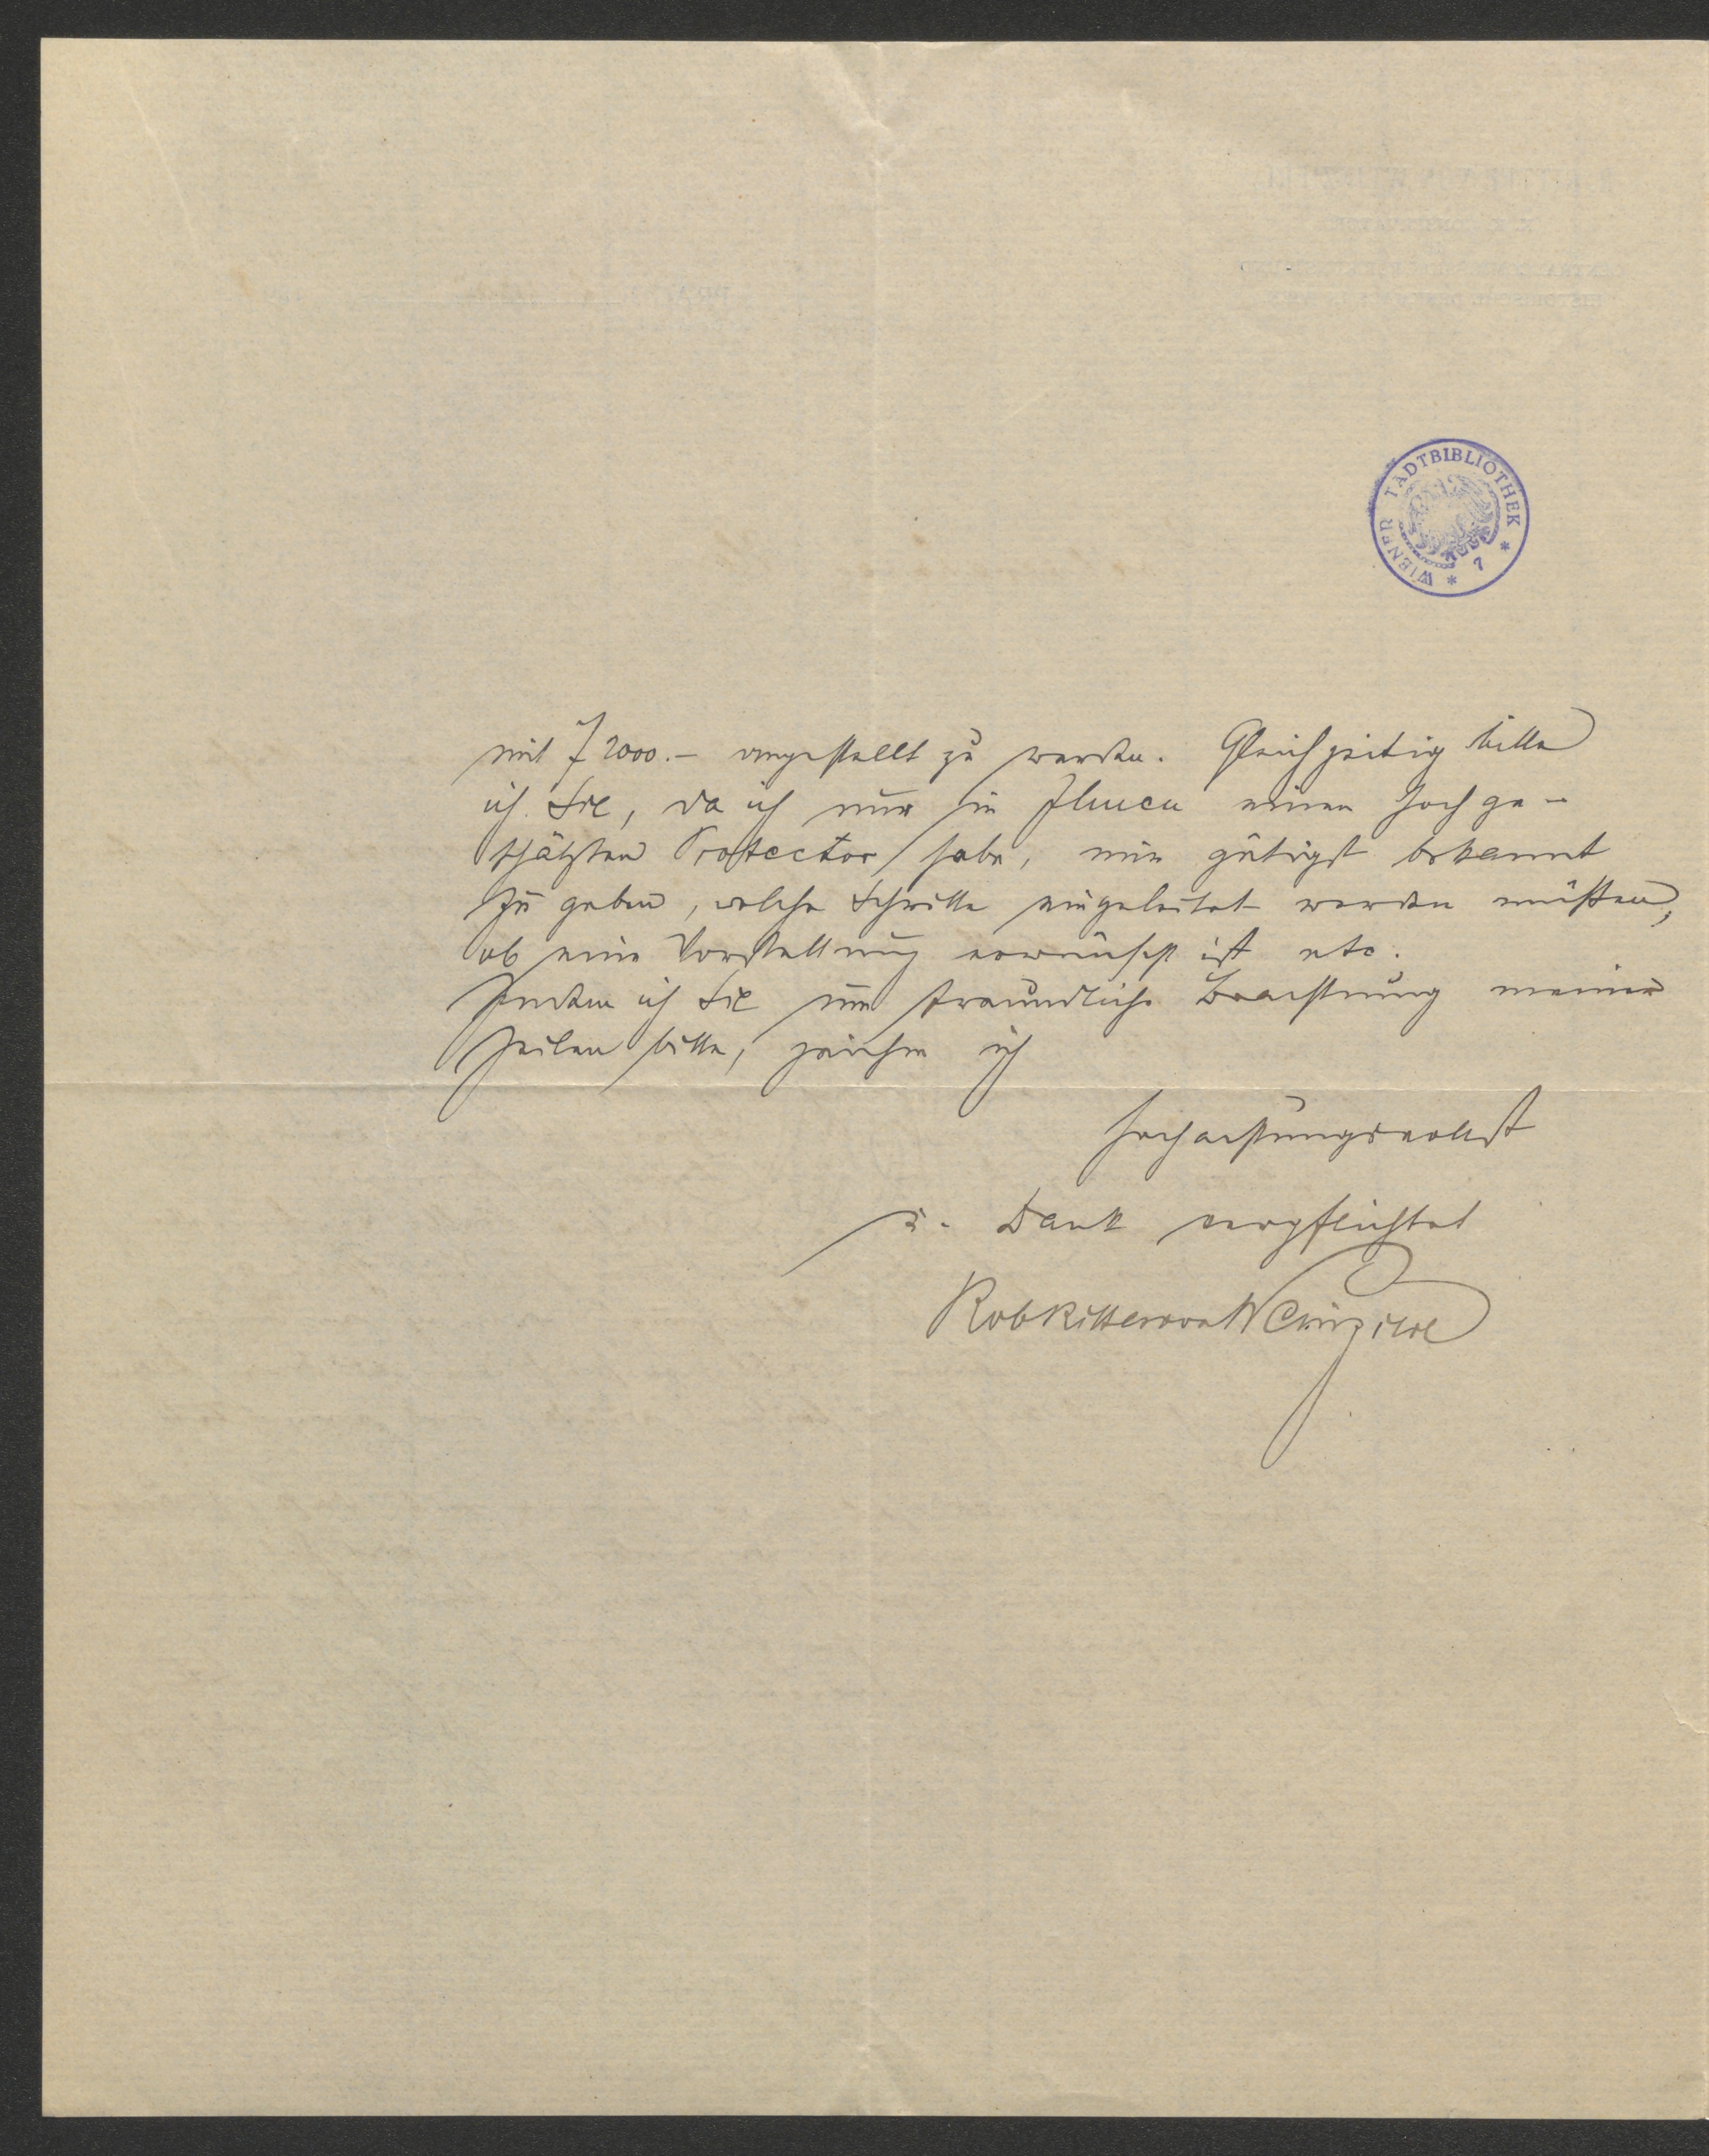 WIENER STADTBIBLIOTHEK * 7 *
mit f 2000.– angestellt zu werden. Gleichzeitig bitte
ich Sie, da ich nur in Ihnen einen hochge-
schätzten Protector habe, mir gütigst bekannt
zu geben, welche Schritte eingeleitet werden müßten,
ob eine Vorstellung erwünscht ist etc.
Indem ich Sie um freundliche Beachtung meiner
Zeilen bitte, zeichne ich
hochachtungsvollst
u. Dank verpflichtet
Rob Ritter von Weinzierl